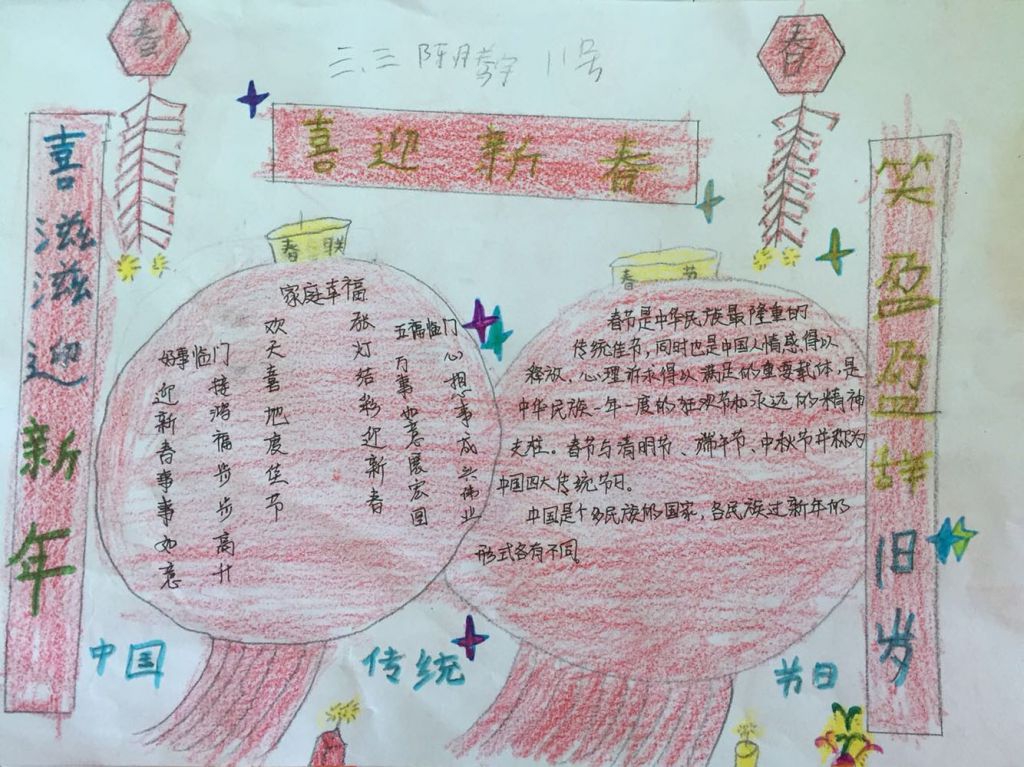 三、三 11号
春
喜迎新春
喜滋滋迎新年
笑盈盈辞旧岁
春联
家庭幸福
张灯结彩迎新春
欢天喜地度佳节
好事临门
接鸿福步步高升
迎新春事事如意
五福临门
心想事成兴伟业
万事如意展宏图
春节
春节是中华民族最隆重的
传统佳节,同时也是中国人情感得以
释放、心理诉求得以满足的重要载体,是
中华民族一年一度的狂欢节和永远的精神
支柱。春节与清明节、端午节、中秋节并称为
中国四大传统节日。
中国是个多民族的国家,各民族过新年的
形式各有不同。
中国 传统 节日